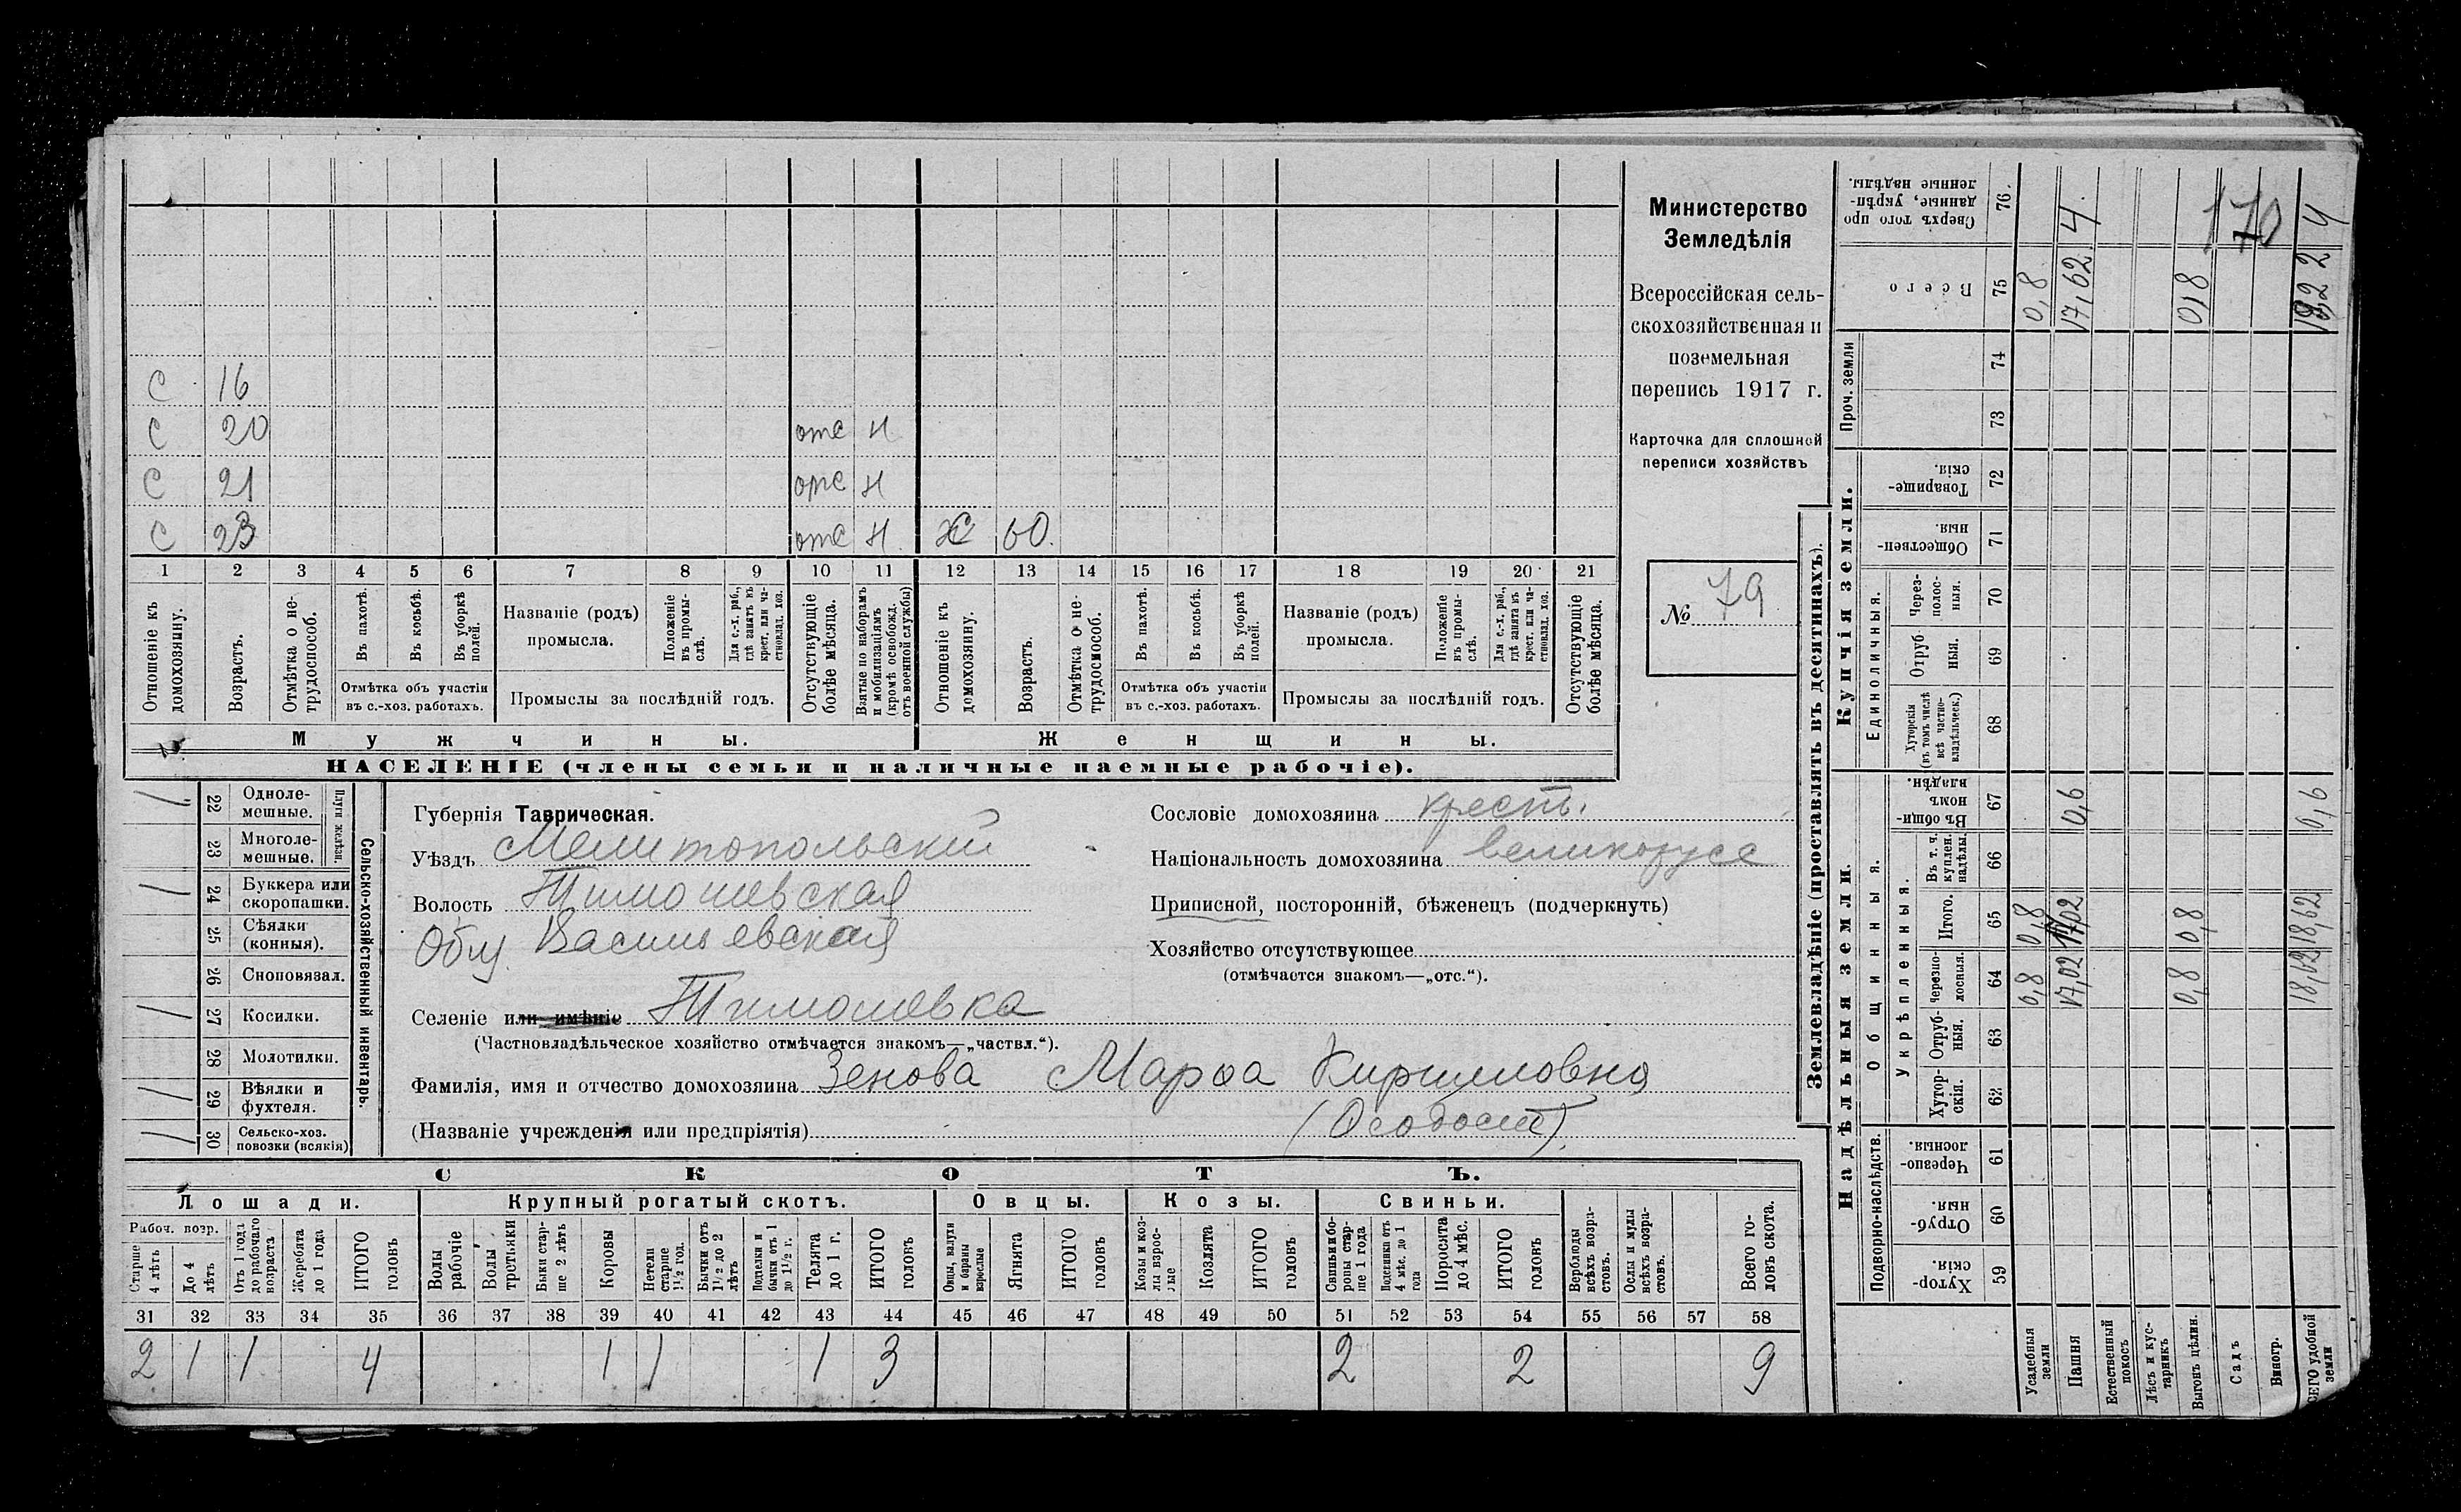 С 16
С 20 отс н
С 21 отс н
С 23 отс н. Ж 60.
1 2 3 4 5 6 7 8 9 10 11 12 13 14 15 16 17 18 19 20 21
Отношеніе къ домохозяину.
Возрастъ.
Отмѣтка о не-трудоспособ.
Въ пахотѣ.
Въ косьбѣ.
Въ уборкѣ полей.
Отмѣтка объ участіи въ с.-хоз. работахъ.
Названіе (родъ) промысла.
Положеніе въ промы-слѣ.
Для с.-х. раб., гдѣ занятъ въ крест. или ча-стновлад. хоз.
Промыслы за послѣдній годъ.
Отсутствующіе болѣе мѣсяца.
Взятые по наборамъ и мобилизаціямъ (кромѣ освобожд. отъ военной службы)
Отношеніе къ домохозяину.
Возрастъ.
Отмѣтка о не-трудоспособ.
Въ пахотѣ.
Въ косьбѣ.
Въ уборкѣ полей.
Отмѣтка объ участіи въ с.-хоз. работахъ.
Названіе (родъ) промысла.
Положеніе въ промы-слѣ.
Для с.-х. раб., гдѣ занята въ крест. или ча-стновлад. хоз.
Промыслы за послѣдній годъ.
Отсутствующіе болѣе мѣсяца.
Мужчины. Женщины.
НАСЕЛЕНІЕ (члены семьи и наличные наемные рабочіе).
Министерство
Земледѣлія
Всероссійская сель-
скохозяйственная и
поземельная
перепись 1917 г.
Карточка для сплошной
переписи хозяйствъ
№ 79
/ 22 Одноле-мешные.
23 Многоле-мешные.
Плуги желѣзн.
/ 24 Буккера или скоропашки.
25 Сѣялки (конныя).
26 Сноповязал.
/ 27 Косилки.
28 Молотилки.
/ 29 Вѣялки и фухтеля.
/ 30 Сельско-хоз. повозки (всякія)
Сельско-хозяйственный инвентарь.
Губернія Таврическая.
Уѣздъ Мелитопольскій
Волость Тимошевская
Общ. Васильевская
Селеніе или имѣніе Тимошевка
(Частновладѣльческое хозяйство отмѣчается знакомъ—„частвл.“).
Фамилія, имя и отчество домохозяина Зенова Марѳа Кирилловна
(Названіе учрежденія или предпріятія)
Сословіе домохозяина крестъ.
Національность домохозяина великорусс
Приписной, посторонній, бѣженецъ (подчеркнуть)
Хозяйство отсутствующее
(отмѣчается знакомъ—„отс.“).
СКОТЪ.
Лошади. Крупный рогатый скотъ. Овцы. Козы. Свиньи.
Рабоч. возр.
Старше 4 лѣтъ
До 4 лѣтъ
Отъ 1 года до рабочаго возраста
Жеребята до 1 года
ИТОГО головъ
Волы рабочіе
Волы третьяки
Быки стар-ше 2 лѣтъ
Коровы
Нетели старше 1½ год.
Бычки отъ 1½ до 2 лѣтъ
Подтелки и бычки отъ 1 до 1½ г.
Телята до 1 г.
ИТОГО головъ
Овцы, валухи и бараны взрослые
Ягнята
ИТОГО головъ
Козы и коз-лы взрос-лые
Козлята
ИТОГО головъ
Свиньи и бо-ровы стар-ше 1 года
Подсвинки отъ 4 мѣс. до 1 года
Поросята до 4 мѣс.
ИТОГО головъ
Верблюды всѣхъ возра-стовъ.
Ослы и мулы всѣхъ возра-стовъ.
Всего го-ловъ скота.
31 32 33 34 35 36 37 38 39 40 41 42 43 44 45 46 47 48 49 50 51 52 53 54 55 56 57 58
2 1 1 4 1 1 1 3 2 2 9
Землевладѣніе (проставлять въ десятинахъ).
Надѣльныя земли. Купчія земли.
Проч. земли
Подворно-наслѣдств.
Общинныя.
Укрѣпленныя.
Единоличныя.
Сверхъ того про данные, укрѣп-ленные надѣлы. 76. 4. 4
170
Всего 75 0,8 17,62 0,8 19,22
74
73
Товарище-скія. 72
Обществен-ныя. 71
Через-полос-ныя. 70
Отруб-ныя. 69
Хуторскія (въ томъ числѣ всѣ частно-владѣльческ.) 68
Въ общи-номъ владѣн. 67 0,6 0,6
Въ т. ч. куплен. надѣлы. 66
Итого. 65 0,8 17,02 0,8 18,62
Черезпо-лосныя. 64 0,8 17,02 0,8 18,62
Отруб-ныя. 63
Хутор-скія. 62
Черезпо-лосныя. 61
Отруб-ныя. 60
Хутор-скія. 59
Усадебныя земли
Пашня
Естественный покосъ
Лѣсъ и кус-тарникъ
Выгонъ цѣлин.
Садъ
Виногр.
ВСЕГО удобной земли